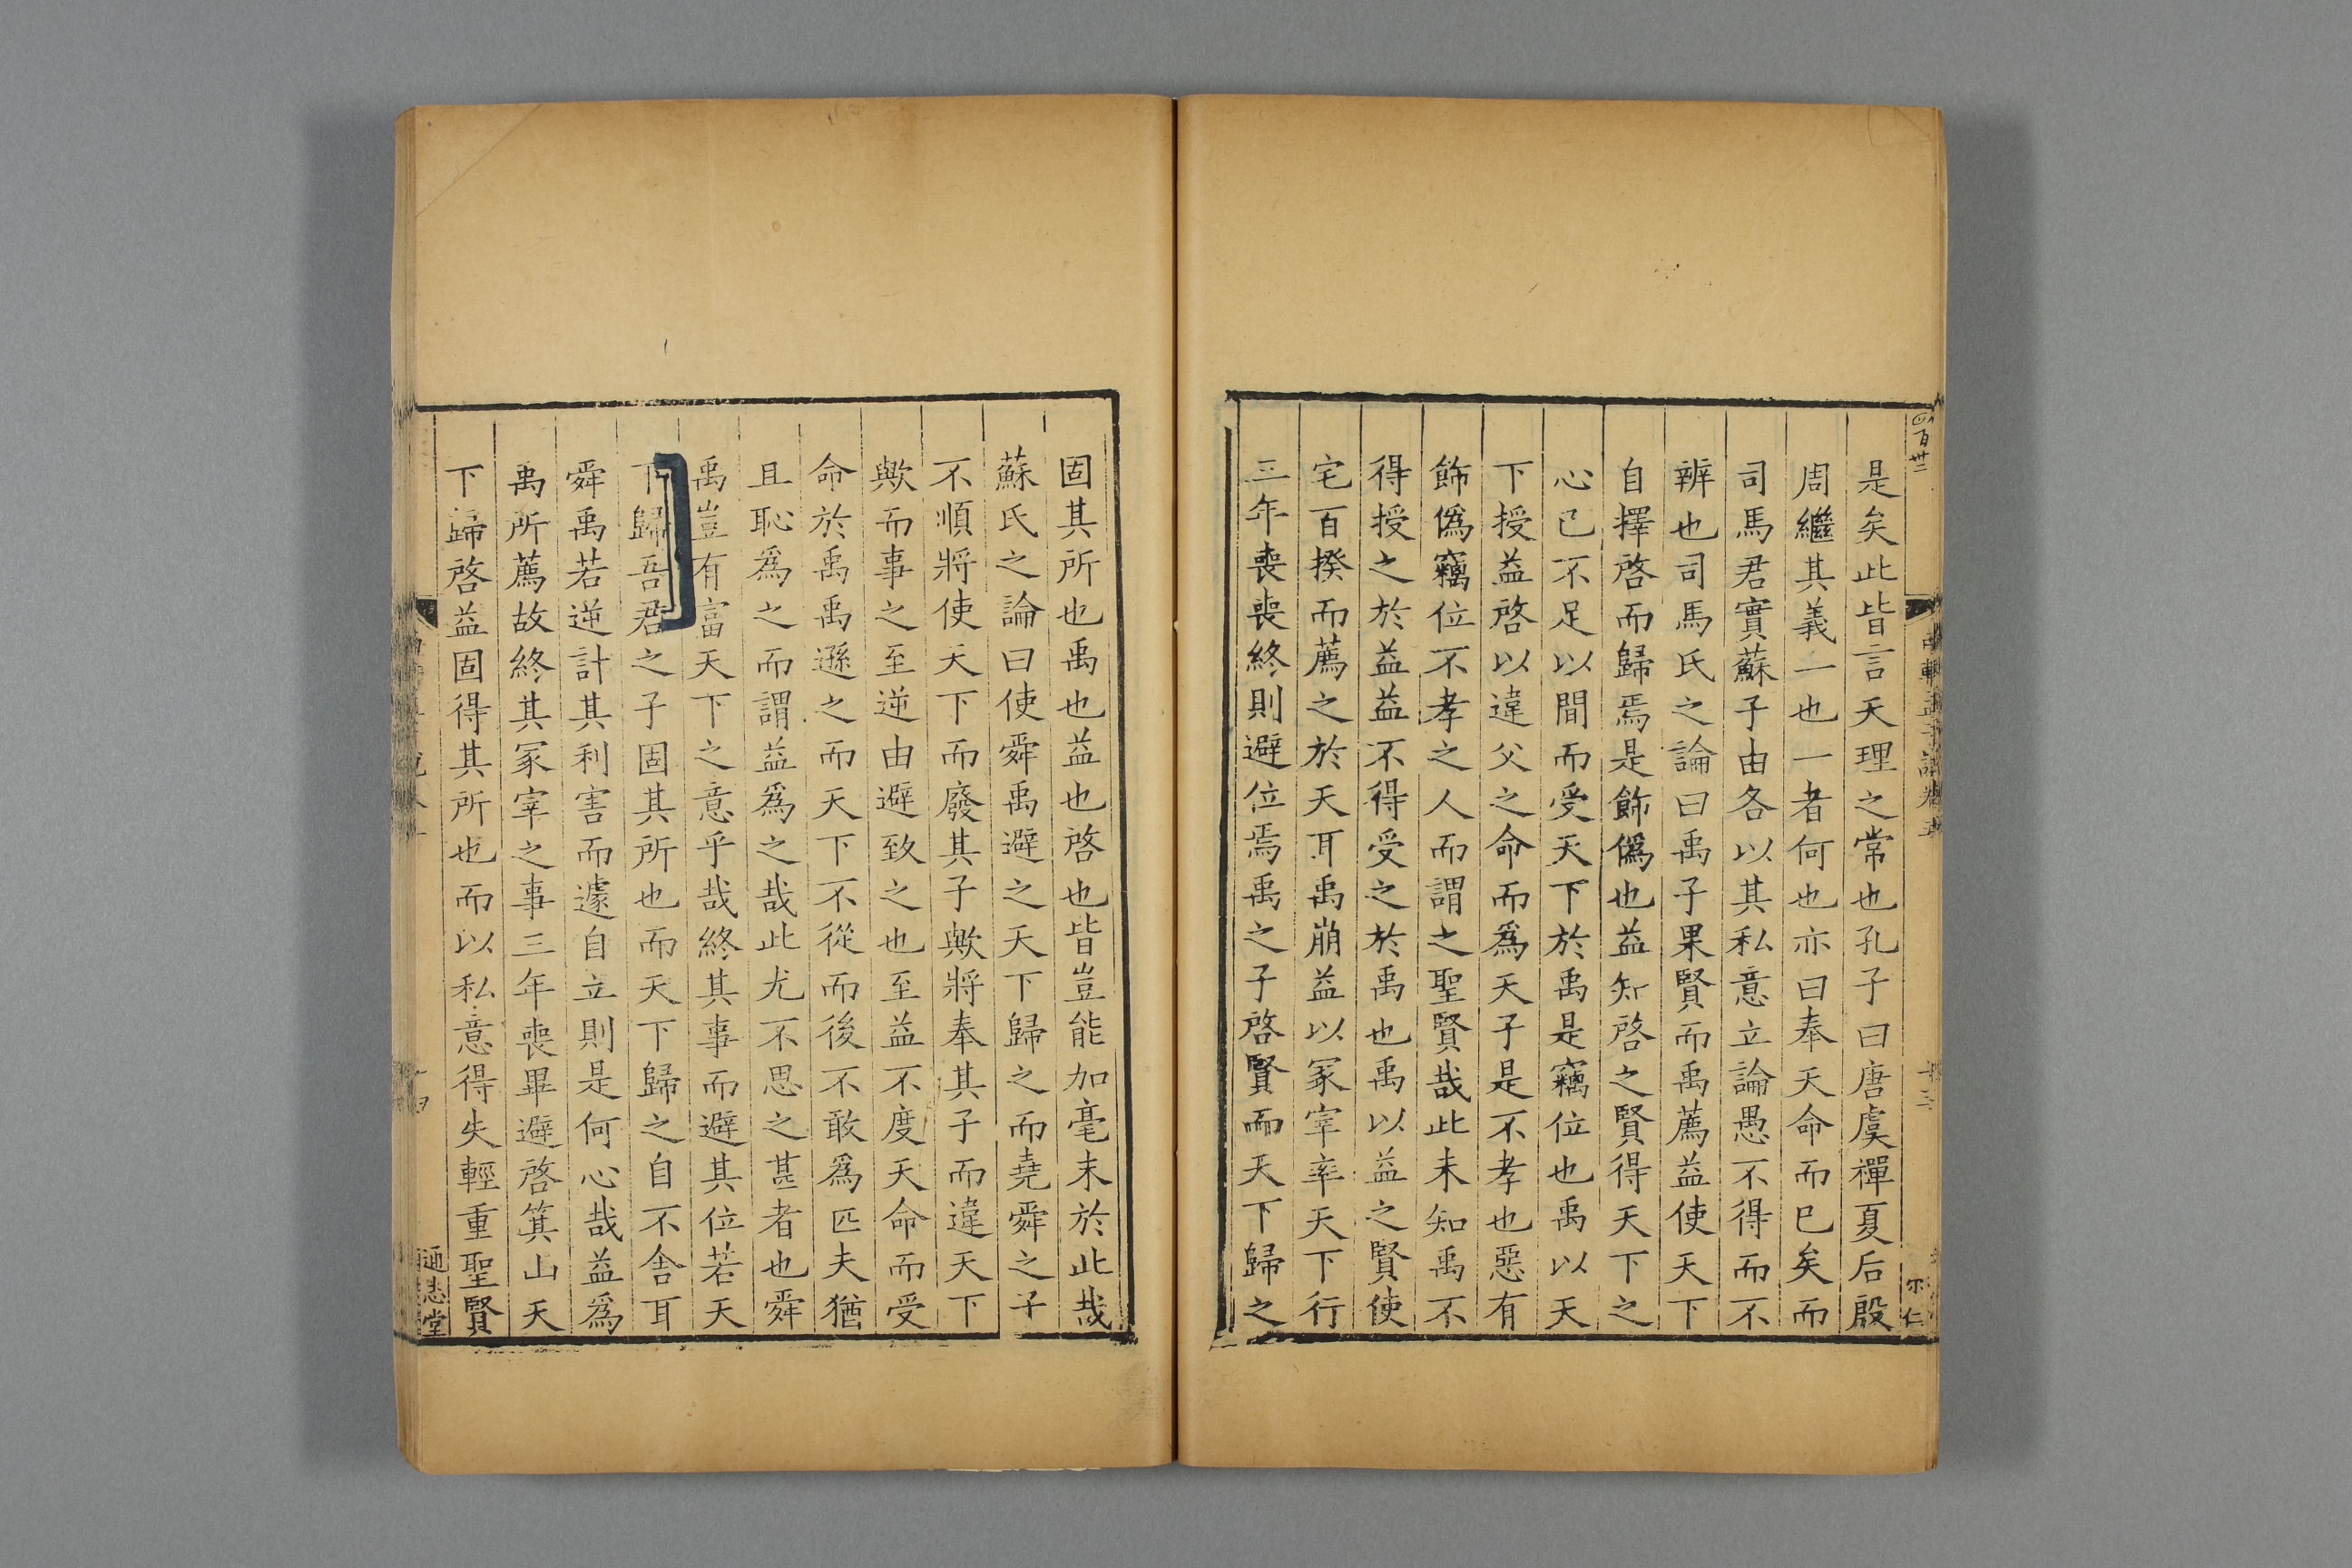 是矣此皆言天理之常也孔子曰唐虞禪夏后殷
周繼其義一也一者何也亦曰奉天命而巳矣而
司馬君實蘇子由各以其私意立論愚不得而不
辨也司馬氏之論曰禹子果賢而禹薦益使天下
自擇啓而歸焉是飾偽也益知啓之賢得天下之
心已不足以間而受天下於禹是竊位也禹以天
下授益啓以違父之命而爲天子是不孝也惡有
飾偽竊位不孝之人而謂之聖賢哉此未知禹不
得授之於益益不得受之於禹也禹以益之賢使
宅百揆而薦之於天耳禹崩益以冢宰率天下行
三年喪喪終則避位焉禹之子啓賢而天下歸之
固其所也禹也益也啓也皆豈能加毫末於此哉
蘇氏之論曰使舜禹避之天下歸之而堯舜之子
不順將使天下而廢其子歟將奉其子而違天下
歟而事之至逆由避致之也至益不度天命而受
命於禹禹遜之而天下不從而後不敢爲匹夫猶
且恥爲之而謂益爲之哉此尤不思之甚者也舜
禹豈有富天下之意乎哉終其事而避其位若天
下歸吾君之子固其所也而天下歸之自不舍耳
舜禹若逆計其利害而遽自立則是何心哉益爲
禹所薦故終其冢宰之事三年喪畢避啓箕山天
下歸啓益固得其所也而以私意得失輕重聖賢
通志堂